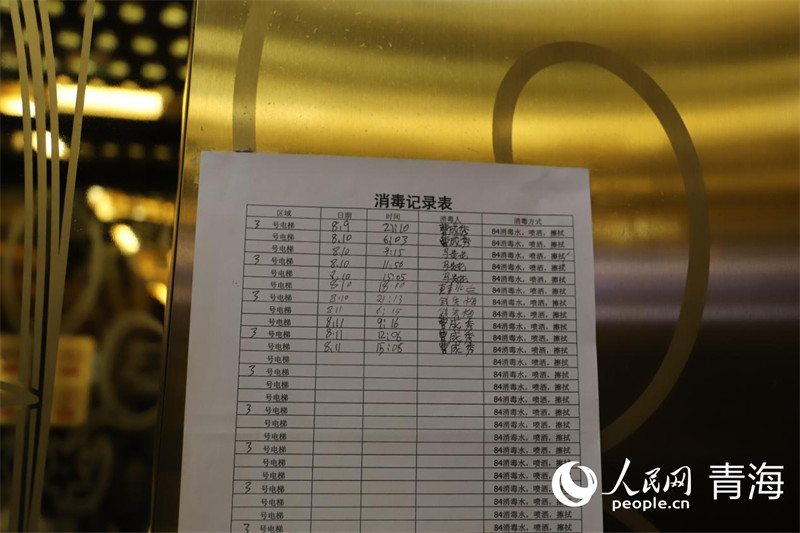 消毒记录表
区域 日期 时间 消毒人 消毒方式
3 号电梯 8.9 21:10 曹成秀 84消毒水，喷洒，擦拭
号电梯 8.10 6:03 曹成秀 84消毒水，喷洒，擦拭
号电梯 8.10 9:15 84消毒水，喷洒，擦拭
3 号电梯 8.10 11:50 84消毒水，喷洒，擦拭
号电梯 8.10 15:05 84消毒水，喷洒，擦拭
号电梯 8.10 18:10 84消毒水，喷洒，擦拭
3 号电梯 8.10 21:13 84消毒水，喷洒，擦拭
号电梯 8.11 6:15 84消毒水，喷洒，擦拭
号电梯 8.11 9:16 曹成秀 84消毒水，喷洒，擦拭
3 号电梯 8.11 12:08 曹成秀 84消毒水，喷洒，擦拭
号电梯 8.11 15:08 曹成秀 84消毒水，喷洒，擦拭
号电梯 84消毒水，喷洒，擦拭
3 号电梯 84消毒水，喷洒，擦拭
号电梯 84消毒水，喷洒，擦拭
号电梯 84消毒水，喷洒，擦拭
3 号电梯 84消毒水，喷洒，擦拭
号电梯 84消毒水，喷洒，擦拭
号电梯 84消毒水，喷洒，擦拭
3 号电梯 84消毒水，喷洒，擦拭
号电梯 84消毒水，喷洒，擦拭
号电梯 84消毒水，喷洒，擦拭
3 号电梯 84消毒水，喷洒，擦拭
号电梯 84消毒水，喷洒，擦拭
号电梯 84消毒水，喷洒，擦拭
3 号电梯 84消毒水，喷洒，擦拭
人民网 青海
people.cn